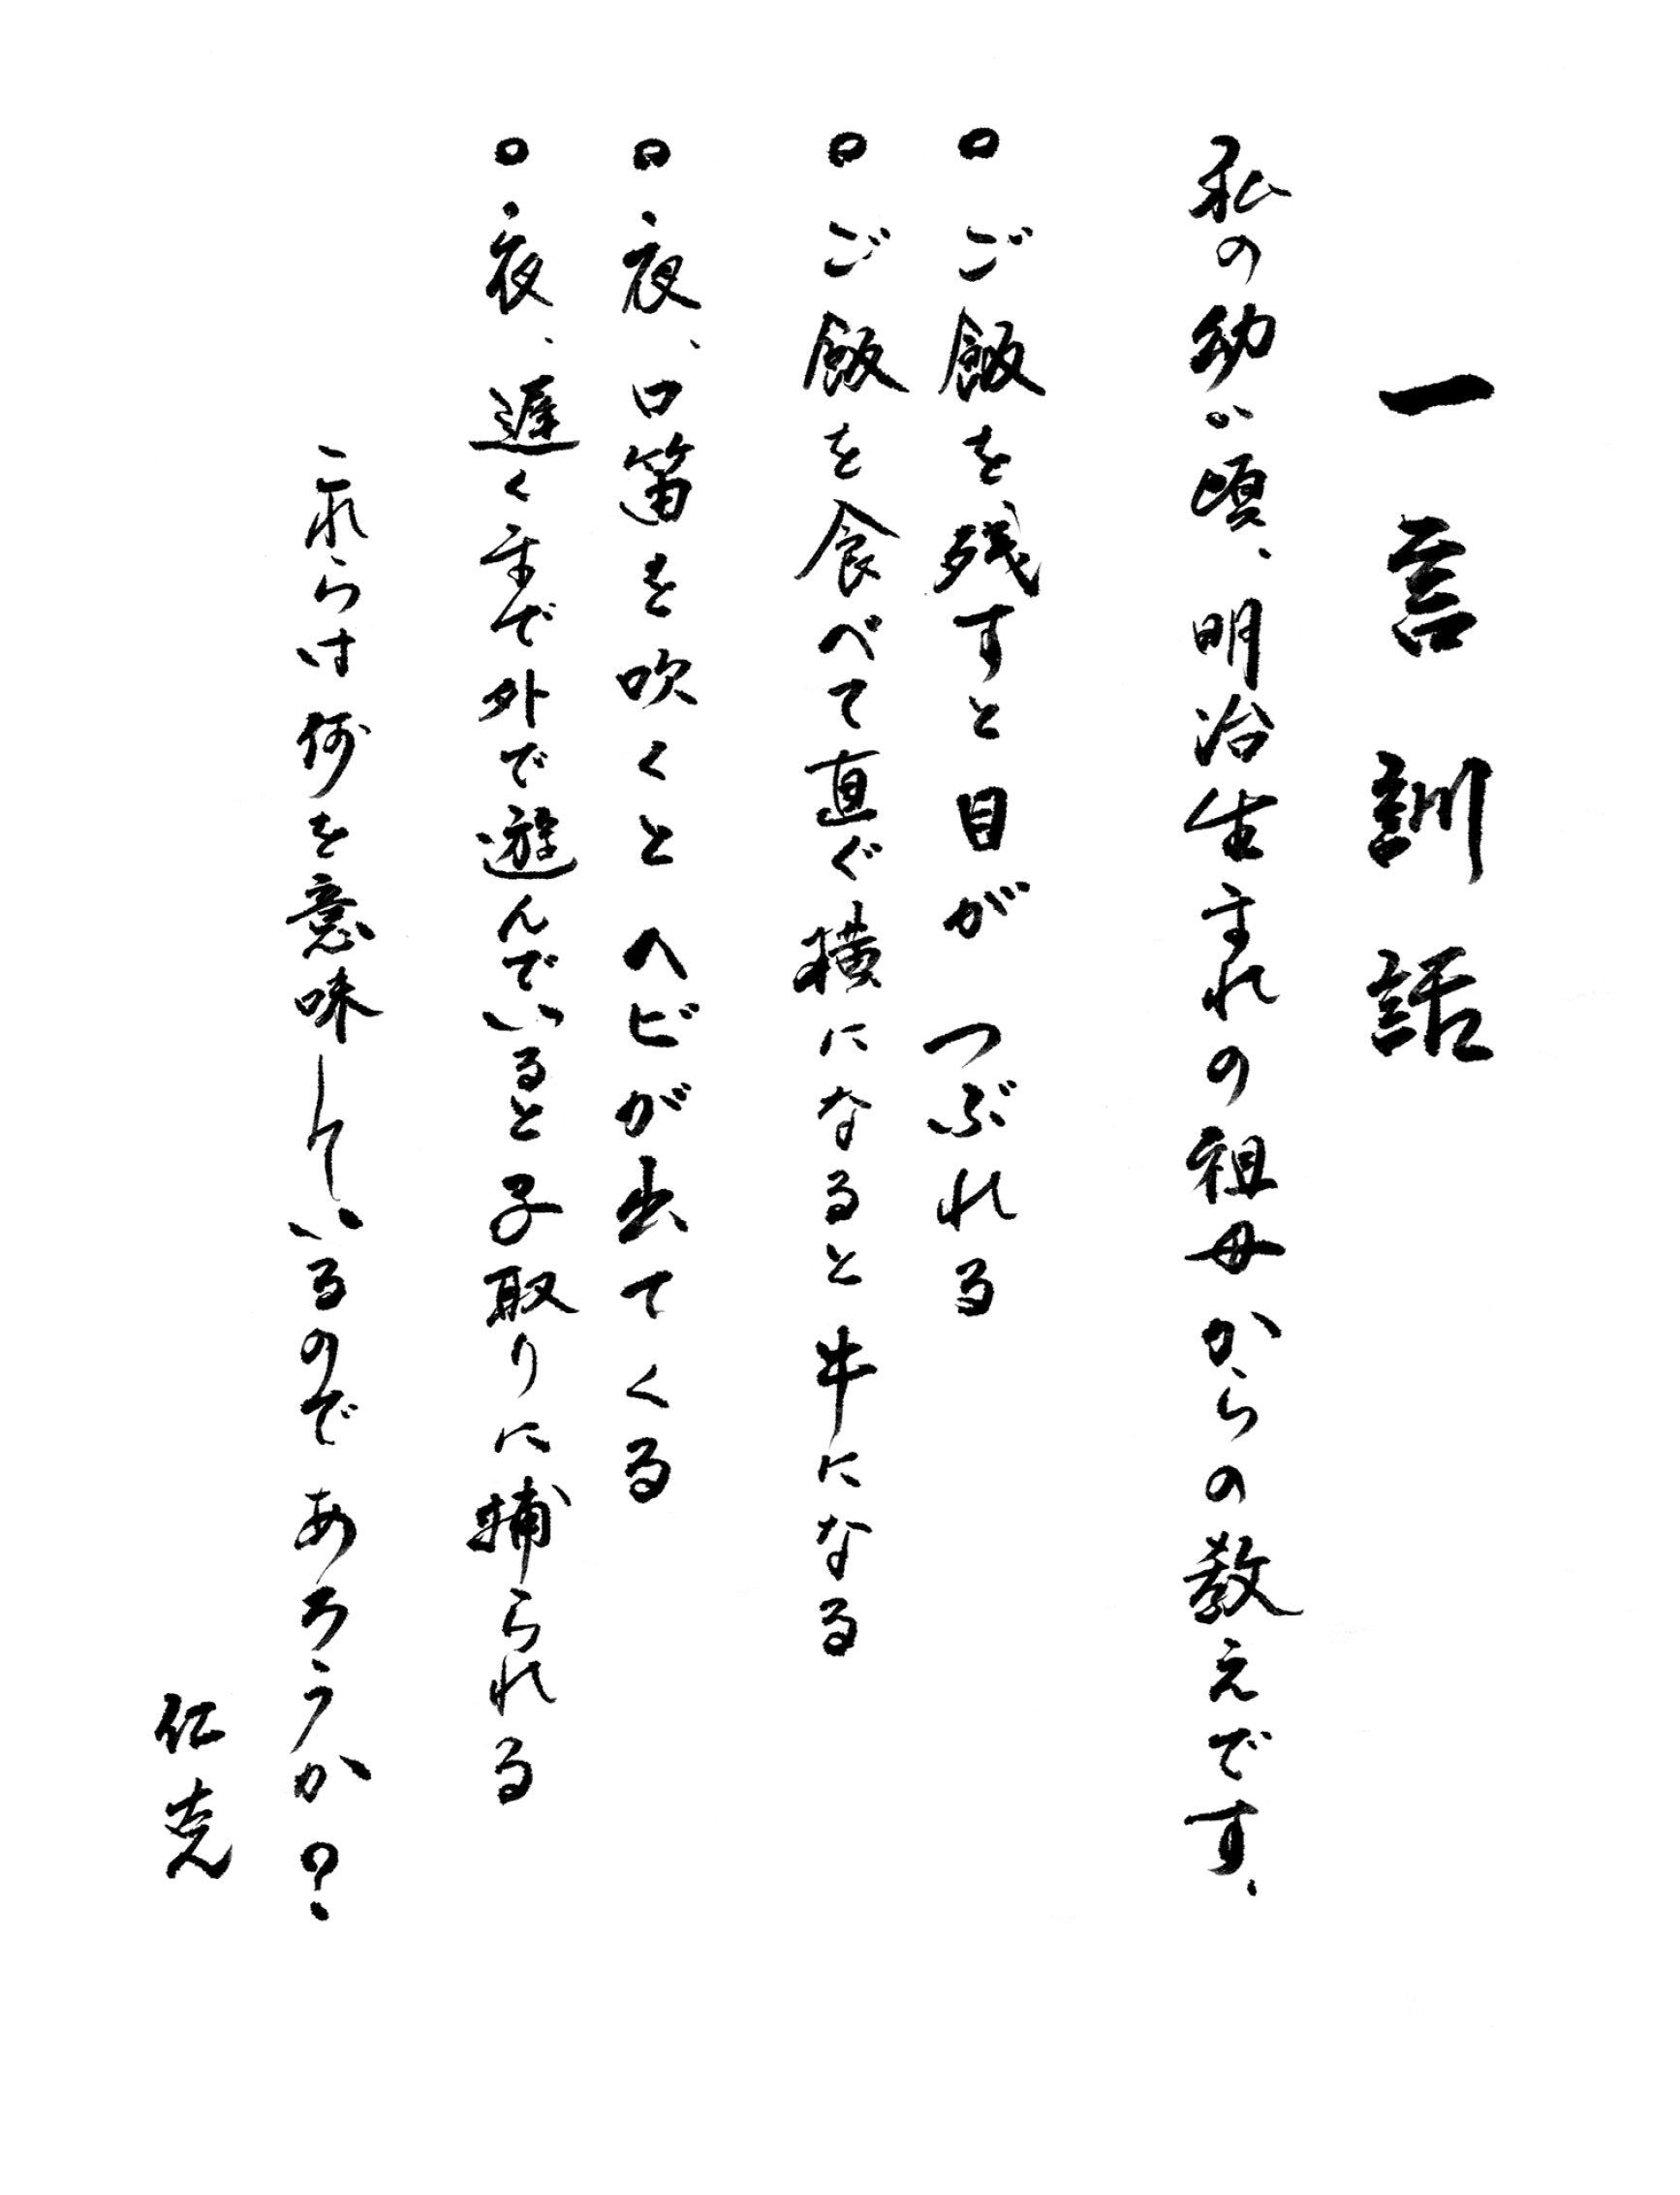 一言訓話
私の幼い頃、明治生まれの祖母からの教えです。
○ご飯を残すと目がつぶれる
○ご飯を食べて直ぐ横になると牛になる
○夜、口笛を吹くとヘビが出てくる
○夜、遅くまで外で遊んでいると子取りに捕られる
これらは何を意味しているのであろうか?
仁克